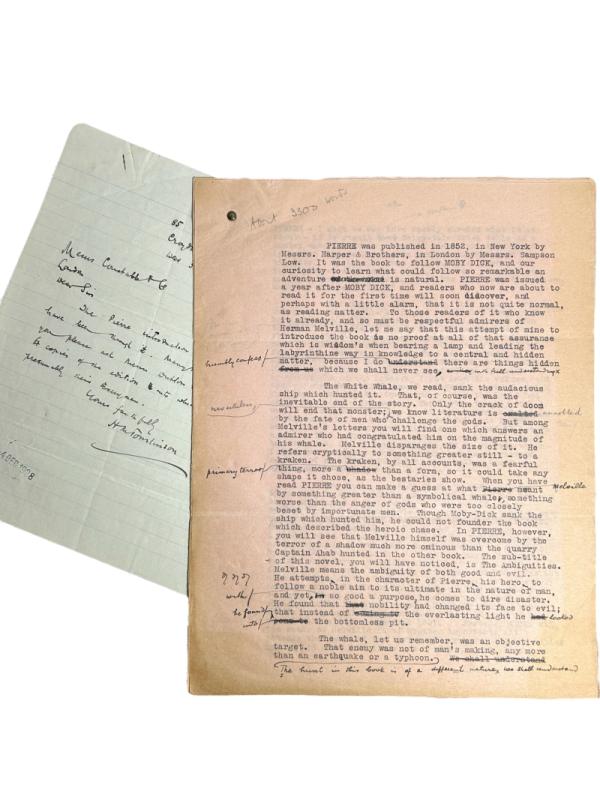 85
Croydon
Messrs Constable & Co
London
Dear Sir
The Pierre introduction
have been
you please
copies edition
presently
H M Tomlinson
About 3300 words
PIERRE was published in 1852, in New York by
Messrs. Harper & Brothers, in London by Messrs. Sampson
Low. It was the book to follow MOBY DICK, and our
curiosity to learn what could follow so remarkable an
adventure is natural. PIERRE was issued
a year after MOBY DICK, and readers who now are about to
read it for the first time will soon discover, and
perhaps with a little alarm, that it is not quite normal,
as reading matter. To those readers of it who know
it already, and so must be respectful admirers of
Herman Melville, let me say that this attempt of mine to
introduce the book is no proof at all of that assurance
which is wisdom's when bearing a lamp and leading the
labyrinthine way in knowledge to a central and hidden
humbly confess/ matter, because I do understand there are things hidden
from us which we shall never see,
The White Whale, we read, sank the audacious
ship which hunted it. That, of course, was the
inevitable end of the story. Only the crack of doom
nevertheless/ will end that monster; we know literature is exalted ennobled
by the fate of men who challenge the gods. But among
Melville's letters you will find one which answers an
admirer who had congratulated him on the magnitude of
his whale. Melville disparages the size of it. He
refers cryptically to something greater still - to a
kraken. The kraken, by all accounts, was a fearful
primary terror/ thing, more a shadow than a form, so it could take any
shape it chose, as the bestaries show. When you have
read PIERRE you can make a guess at what Pierre meant Melville
by something greater than a symbolical whale, something
worse than the anger of gods who were too closely
beset by importunate men. Though Moby-Dick sank the
ship which hunted him, he could not founder the book
which described the heroic chase. In PIERRE, however,
you will see that Melville himself was overcome by the
terror of a shadow much more ominous than the quarry
Captain Ahab hunted in the other book. The sub-title
of this novel, you will have noticed, is The Ambiguities.
Melville means the ambiguity of both good and evil.
He attempts, in the character of Pierre, his hero, to
follow a noble aim to its ultimate in the nature of man,
with/ and yet, in so good a purpose, he comes to dire disaster.
he found/ He found that that nobility had changed its face to evil;
into/ that instead of the everlasting light he had looked
the bottomless pit.
The whale, let us remember, was an objective
target. That enemy was not of man's making, any more
than an earthquake or a typhoon. We shall understand
The hunt in this book is of a different nature, we shall understand